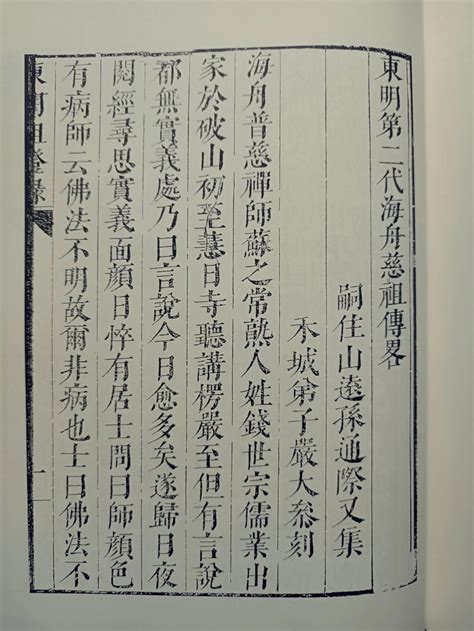 東明第二代海舟慈祖傳畧
嗣住山遠孫通際又集
禾城弟子嚴大參刻
海舟普慈禪師蘇之常熟人姓錢世宗儒業出
家於破山初至慧日寺聽講楞嚴至但有言說
都無實義處乃曰言說今日愈多矣遂歸日夜
閱經尋思實義面顏日悴有居士問曰師顏色
有病師云佛法不明故爾非病也士曰佛法不
東明祖燈錄
一